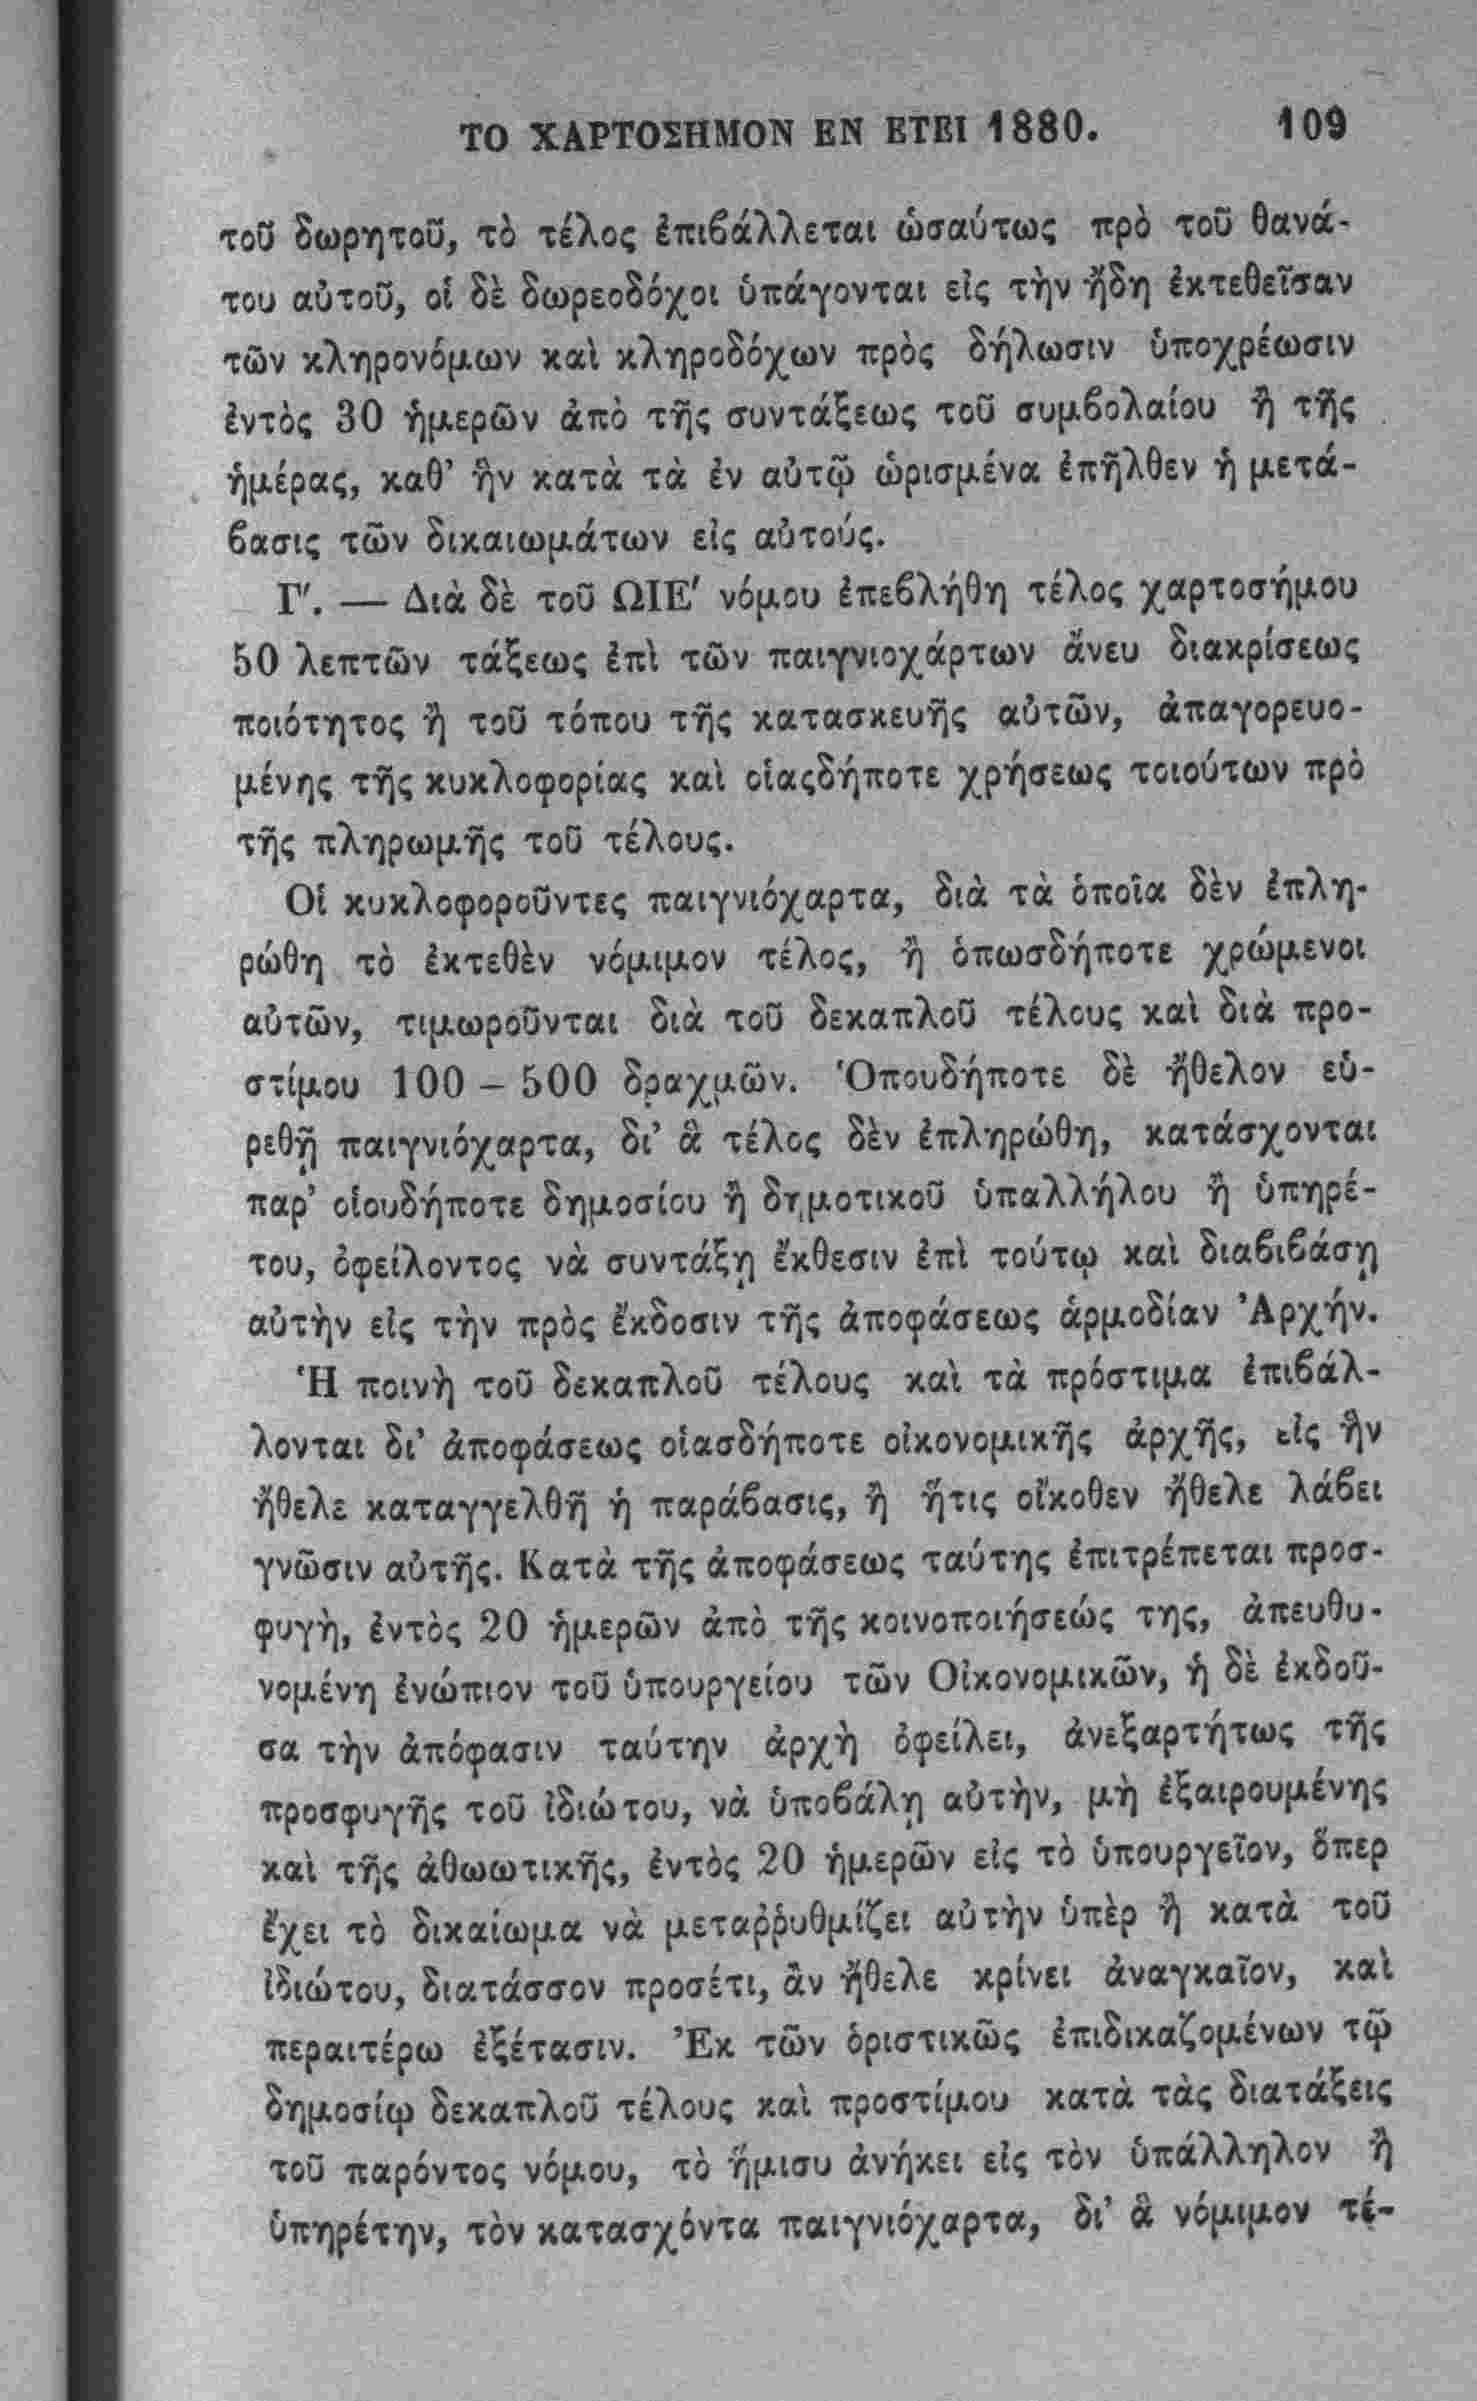 ΤΟ ΧΑΡΤΟΣΗΜΟΝ ΕΝ ΕΤΕΙ 1880. 109
τοῦ δωρητοῦ, τὸ τέλος ἐπιβάλλεται ὡσαύτως πρὸ τοῦ θανά-
του αὐτοῦ, οἱ δὲ δωρεοδόχοι ὑπάγονται εἰς τὴν ἤδη ἐκτεθεῖσαν
τῶν κληρονόμων καὶ κληροδόχων πρὸς δήλωσιν ὑποχρέωσιν
ἐντὸς 30 ἡμερῶν ἀπὸ τῆς συντάξεως τοῦ συμβολαίου ἢ τῆς
ἡμέρας, καθ’ ἣν κατὰ τὰ ἐν αὐτῷ ὡρισμένα ἐπῆλθεν ἡ μετά-
βασις τῶν δικαιωμάτων εἰς αὐτούς.
Γ'. — Διὰ δὲ τοῦ ΩΙΕ' νόμου ἐπεβλήθη τέλος χαρτοσήμου
50 λεπτῶν τάξεως ἐπὶ τῶν παιγνιοχάρτων ἄνευ διακρίσεως
ποιότητος ἢ τοῦ τόπου τῆς κατασκευῆς αὐτῶν, ἀπαγορευο-
μένης τῆς κυκλοφορίας καὶ οἱαςδήποτε χρήσεως τοιούτων πρὸ
τῆς πληρωμῆς τοῦ τέλους.
Οἱ κυκλοφοροῦντες παιγνιόχαρτα, διὰ τὰ ὁποῖα δὲν ἐπλη-
ρώθη τὸ ἐκτεθὲν νόμιμον τέλος, ἢ ὁπωσδήποτε χρώμενοι
αὐτῶν, τιμωροῦνται διὰ τοῦ δεκαπλοῦ τέλους καὶ διὰ προ-
στίμου 100 – 500 δραχμῶν. Ὁπουδήποτε δὲ ἤθελον εὑ-
ρεθῇ παιγνιόχαρτα, δι’ ἃ τέλος δὲν ἐπληρώθη, κατάσχονται
παρ’ οἱουδήποτε δημοσίου ἢ δημοτικοῦ ὑπαλλήλου ἢ ὑπηρέ-
του, ὀφείλοντος νὰ συντάξῃ ἔκθεσιν ἐπὶ τούτῳ καὶ διαβιβάσῃ
αὐτὴν εἰς τὴν πρὸς ἔκδοσιν τῆς ἀποφάσεως ἁρμοδίαν Ἀρχήν.
Ἡ ποινὴ τοῦ δεκαπλοῦ τέλους καὶ τὰ πρόστιμα ἐπιβάλ-
λονται δι’ ἀποφάσεως οἱασδήποτε οἰκονομικῆς ἀρχῆς, εἰς ἣν
ἤθελε καταγγελθῆ ἡ παράβασις, ἢ ἥτις οἴκοθεν ἤθελε λάβει
γνῶσιν αὐτῆς. Κατὰ τῆς ἀποφάσεως ταύτης ἐπιτρέπεται προσ-
φυγὴ, ἐντὸς 20 ἡμερῶν ἀπὸ τῆς κοινοποιήσεώς της, ἀπευθυ-
νομένη ἐνώπιον τοῦ ὑπουργείου τῶν Οἰκονομικῶν, ἡ δὲ ἐκδοῦ-
σα τὴν ἀπόφασιν ταύτην ἀρχὴ ὀφείλει, ἀνεξαρτήτως τῆς
προσφυγῆς τοῦ ἰδιώτου, νὰ ὑποβάλῃ αὐτὴν, μὴ ἐξαιρουμένης
καὶ τῆς ἀθωωτικῆς, ἐντὸς 20 ἡμερῶν εἰς τὸ ὑπουργεῖον, ὅπερ
ἔχει τὸ δικαίωμα νὰ μεταῤῥυθμίζει αὐτὴν ὑπὲρ ἢ κατὰ τοῦ
ἰδιώτου, διατάσσον προσέτι, ἂν ἤθελε κρίνει ἀναγκαῖον, καὶ
περαιτέρω ἐξέτασιν. Ἐκ τῶν ὁριστικῶς ἐπιδικαζομένων τῷ
δημοσίῳ δεκαπλοῦ τέλους καὶ προστίμου κατὰ τὰς διατάξεις
τοῦ παρόντος νόμου, τὸ ἥμισυ ἀνήκει εἰς τὸν ὑπάλληλον ἢ
ὑπηρέτην, τὸν κατασχόντα παιγνιόχαρτα, δι’ ἃ νόμιμον τέ-